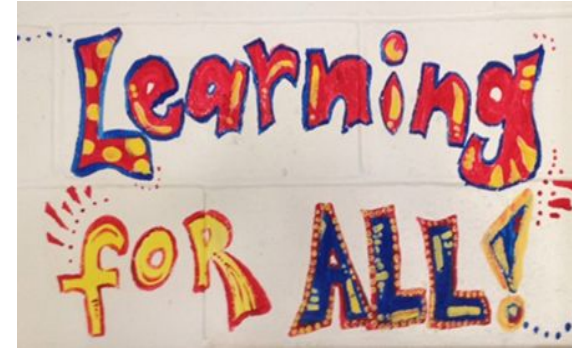 Learning
foR ALL!